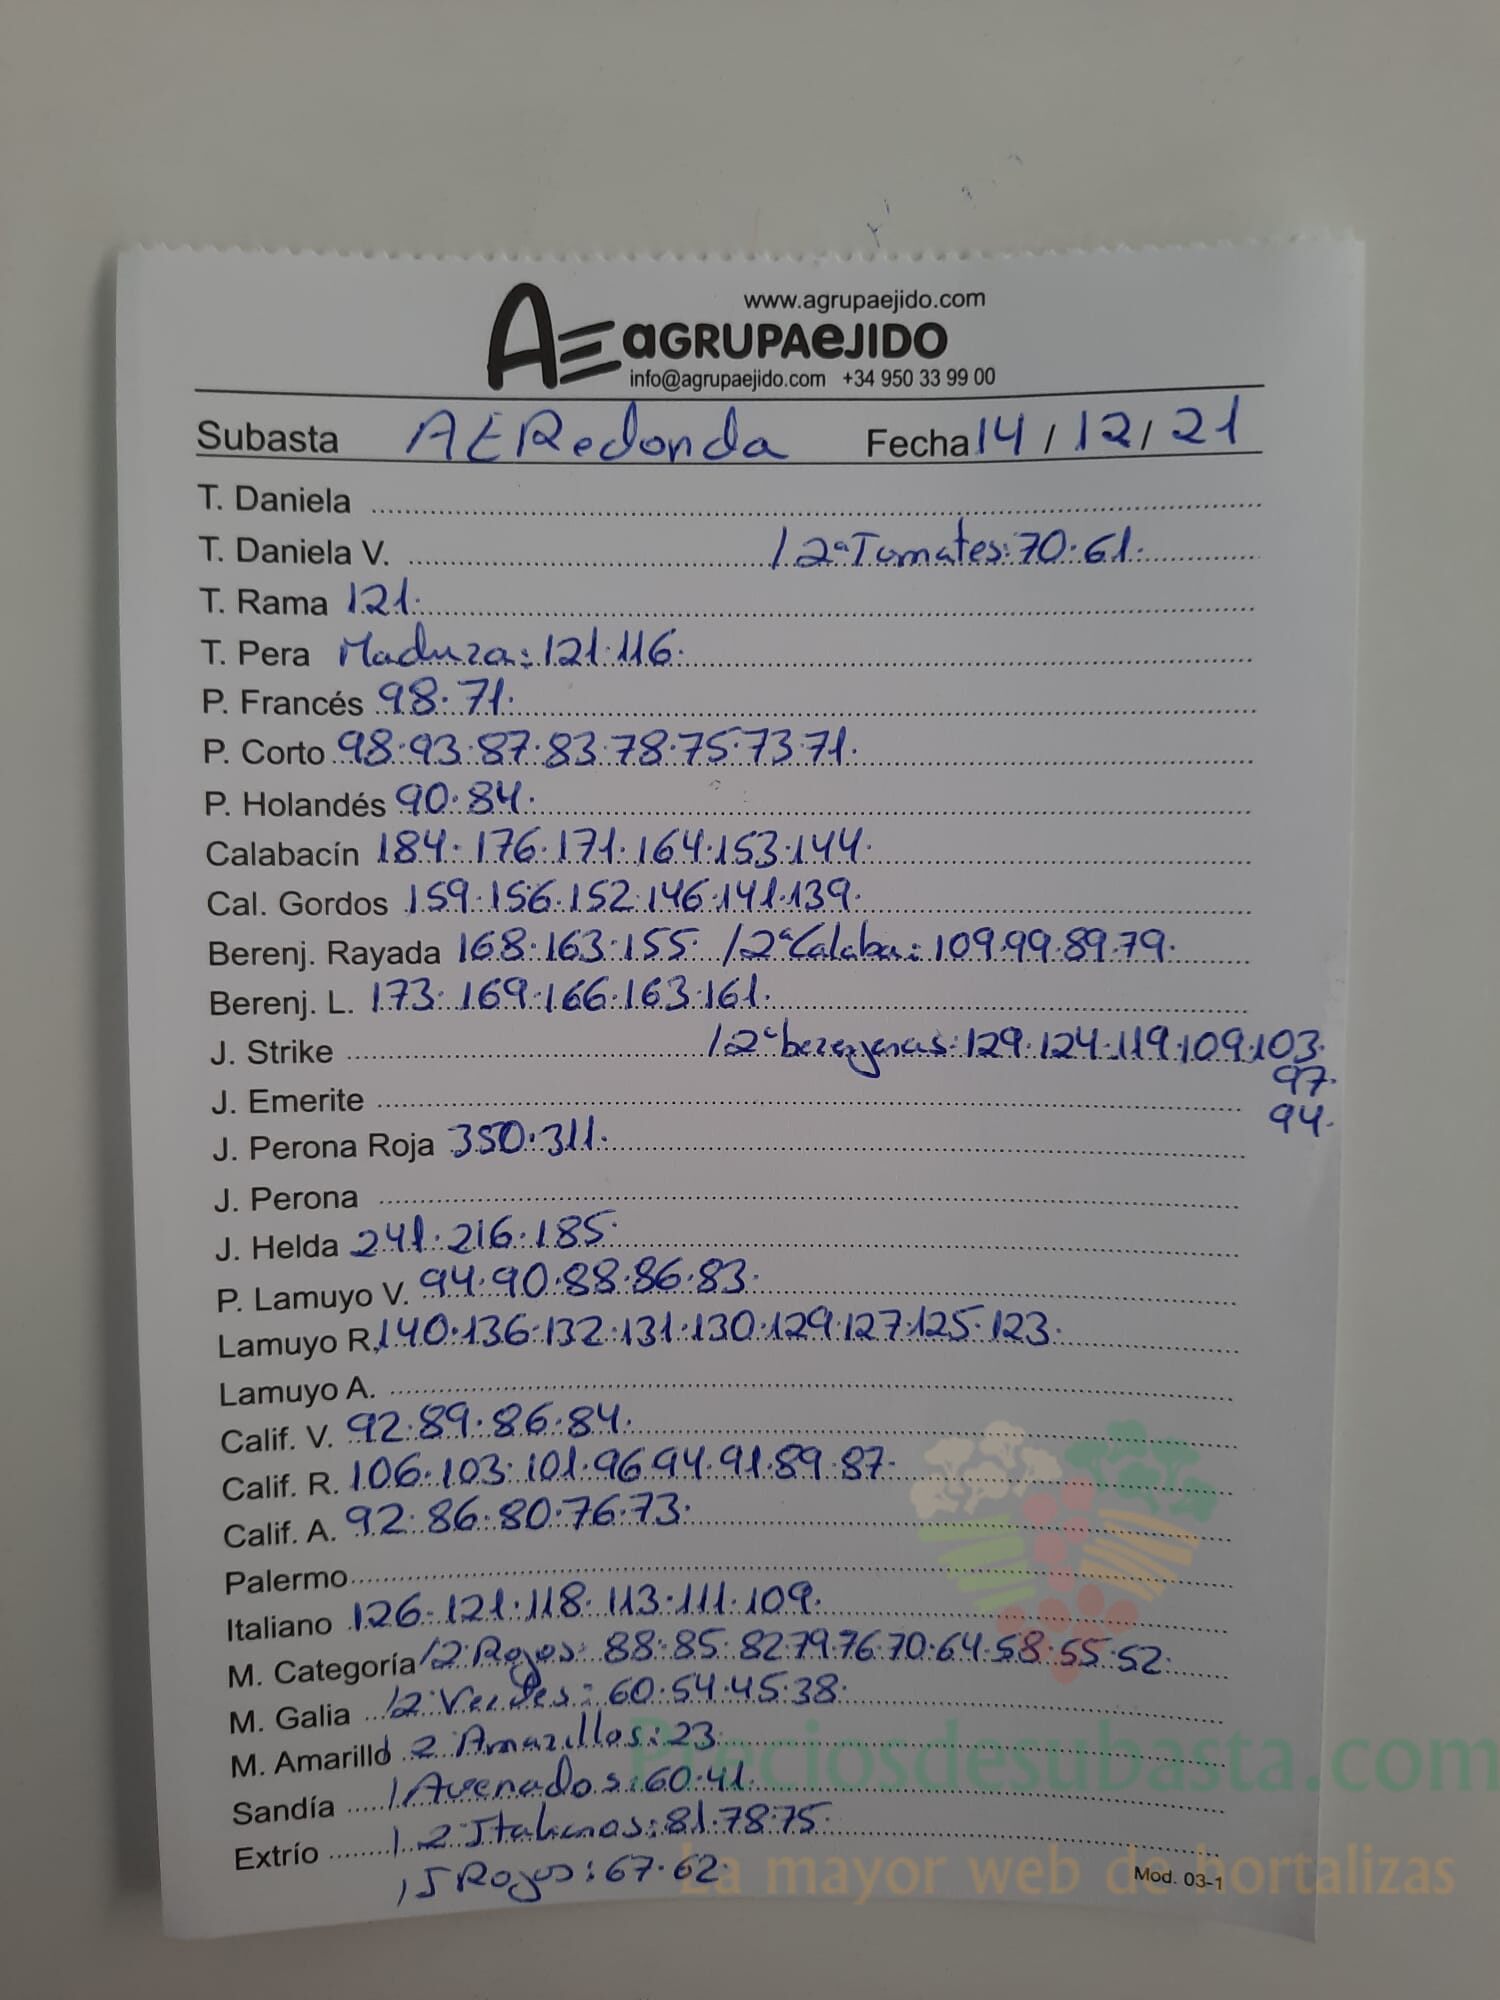 www.agrupaejido.com
AE aGRUPAeJIDO
info@agrupaejido.com +34 950 33 99 00
Subasta AERedonda Fecha 14/12/21
T. Daniela
T. Daniela V. / 2ª Tomates: 70. 61.
T. Rama 121.
T. Pera Madura: 121. 116.
P. Francés 98. 71.
P. Corto 98. 93. 87. 83. 78. 75. 73. 71.
P. Holandés 90. 84.
Calabacín 184. 176. 171. 164. 153. 144.
Cal. Gordos 159. 156. 152. 146. 141. 139.
Berenj. Rayada 168. 163. 155. / 2ª Calaba: 109. 99. 89. 79.
Berenj. L. 173. 169. 166. 163. 161.
J. Strike / 2ª berenjenas: 129. 124. 119. 109. 103.
97.
J. Emerite 94.
J. Perona Roja 350. 311.
J. Perona
J. Helda 241. 216. 185.
P. Lamuyo V. 94. 90. 88. 86. 83.
Lamuyo R. 140. 136. 132. 131. 130. 129. 127. 125. 123.
Lamuyo A.
Calif. V. 92. 89. 86. 84.
Calif. R. 106. 103. 101. 96. 94. 91. 89. 87.
Calif. A. 92. 86. 80. 76. 73.
Palermo
Italiano 126. 121. 118. 113. 111. 109.
M. Categoría / 2 Rojos: 88. 85. 82. 79. 76. 70. 64. 58. 55. 52.
M. Galia / 2 Verdes: 60. 54. 45. 38.
M. Amarillo 2 Amarillos: 23.
Sandía / Avenados: 60. 41.
Extrío / 2 Italianos: 81. 78. 75.
/ 5 Rojos: 67. 62.
Mod. 03-1
Preciosdesubasta.com
La mayor web de hortalizas